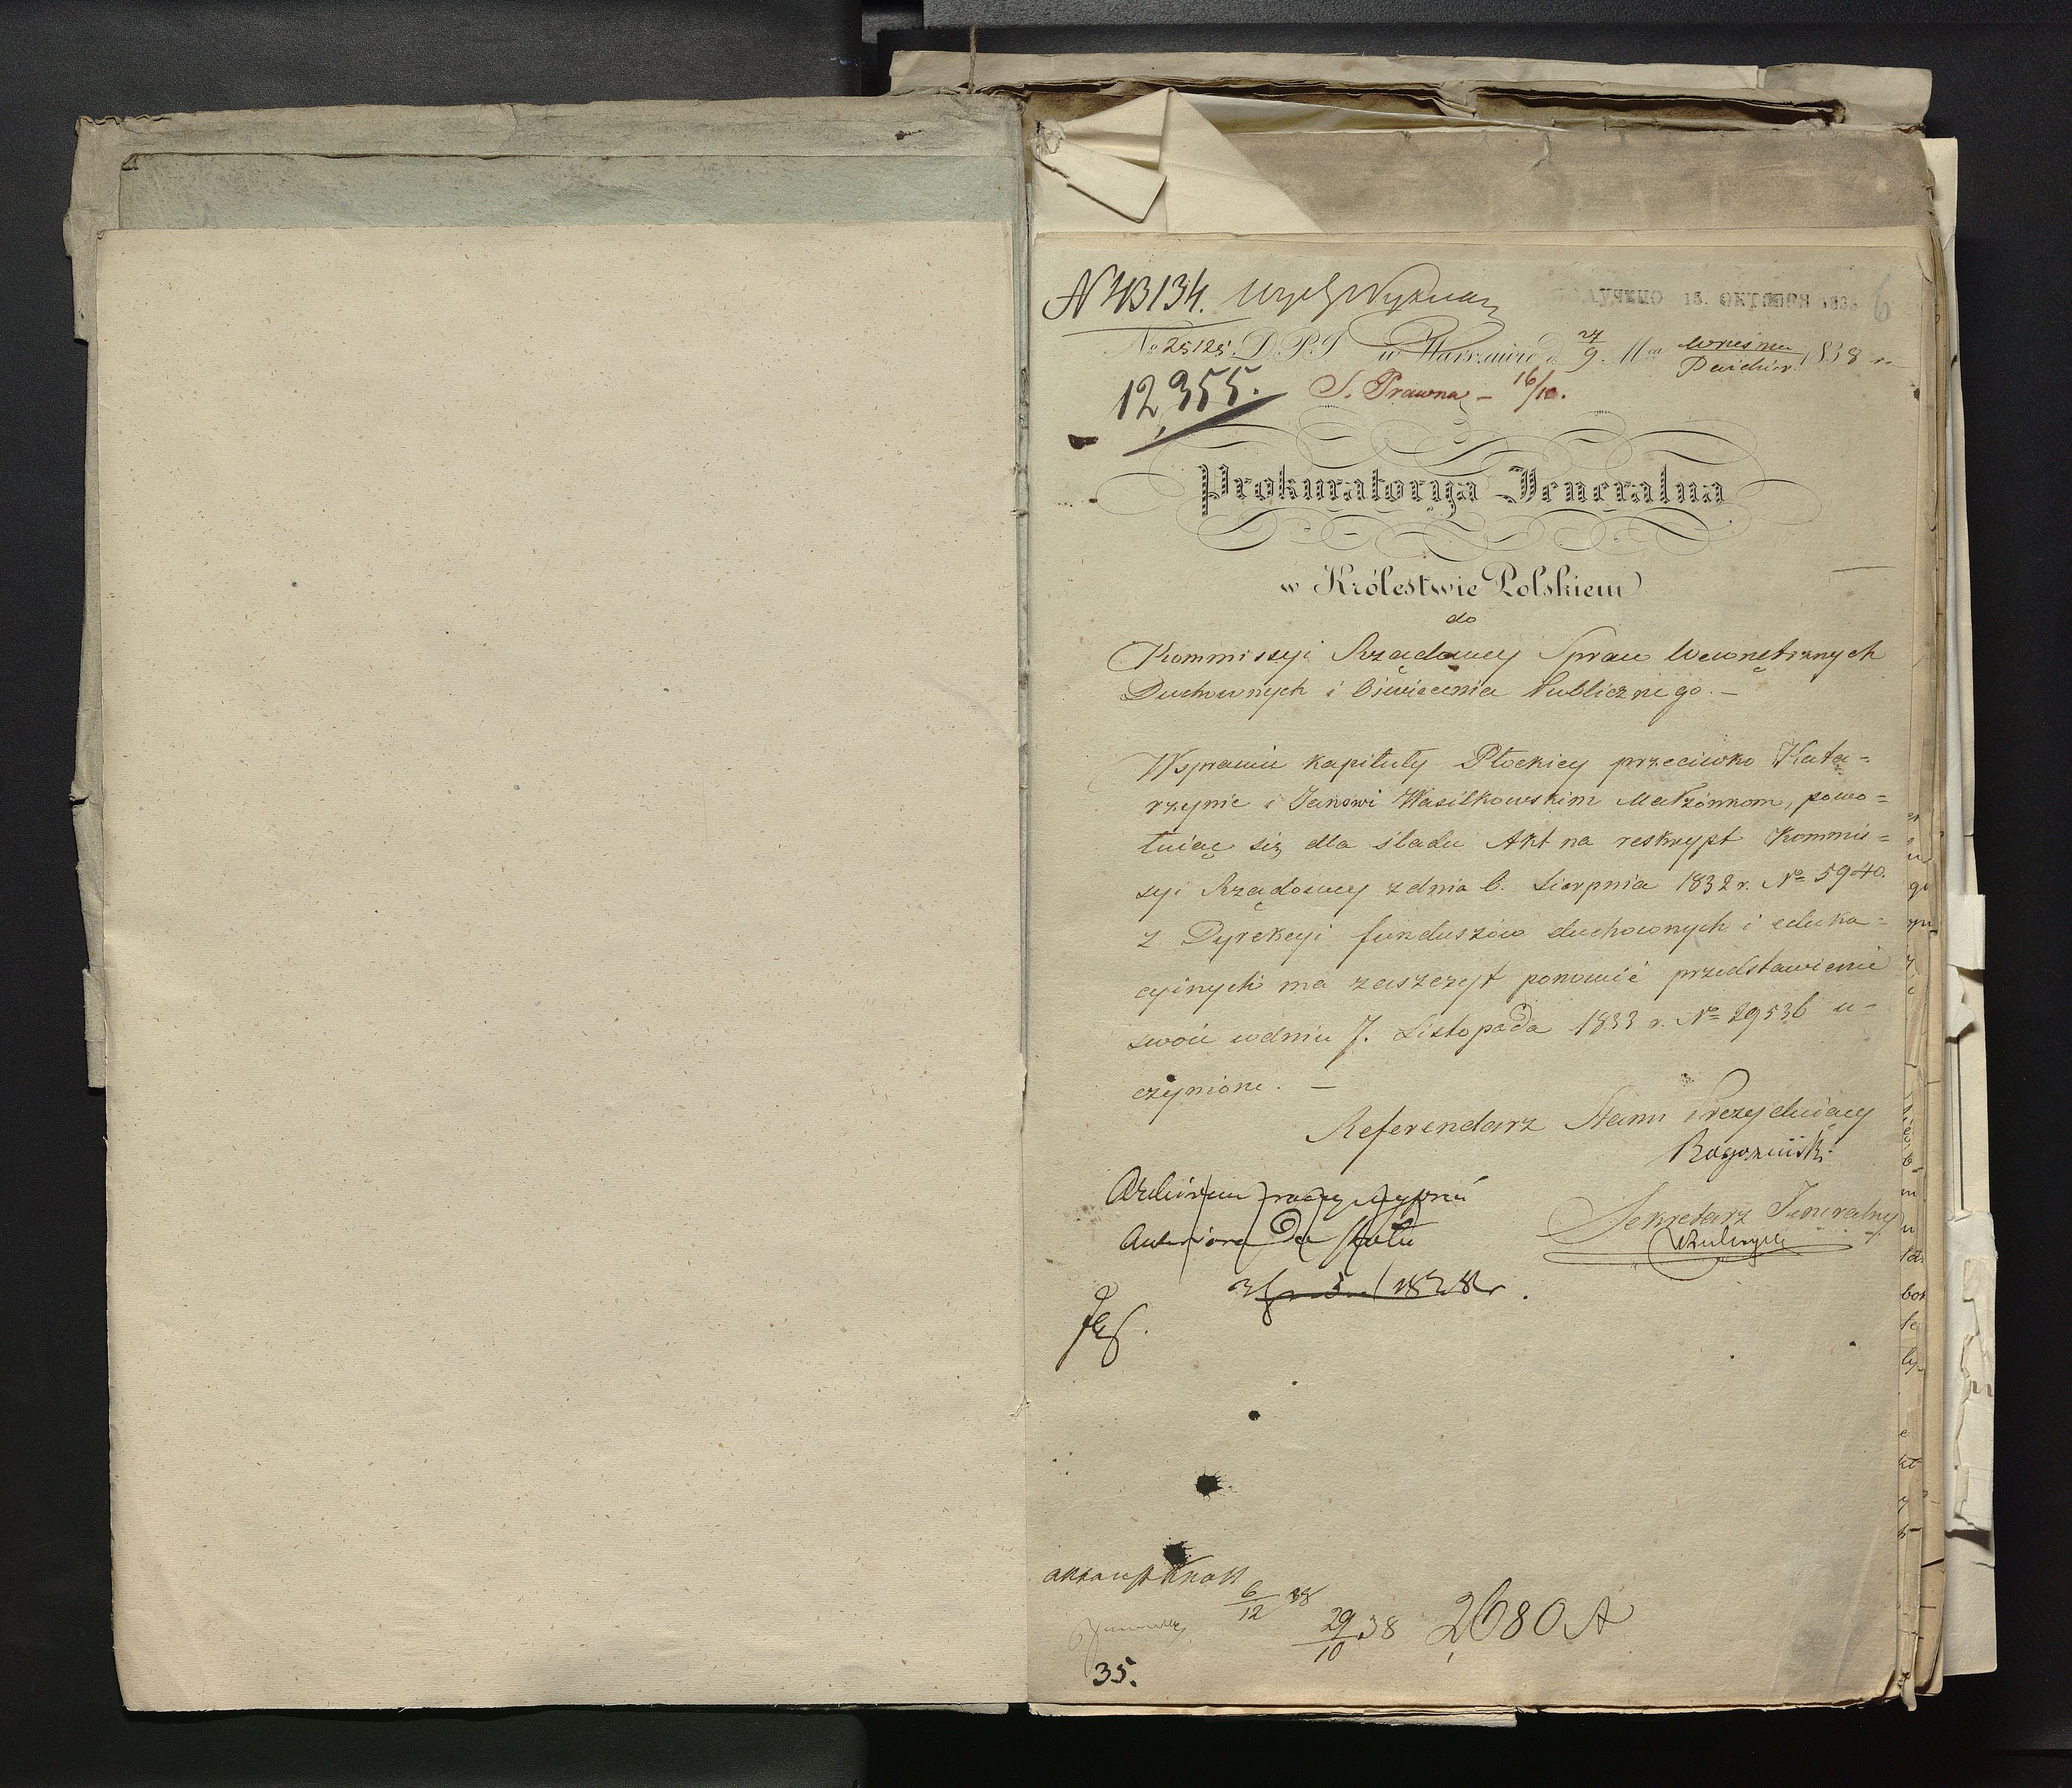 N 43134.
ПОЛУЧЕНО 15. ОКТЯБРЯ 1838
6
No 25125. D.P.S w Warszawie d 27/9 Mca Września/Paździer. 1838 r.
12,355.
S. Prawna - 16/10.
Prokuratorya Jeneralna
w Królestwie Polskiem
do
Kommissyi Rządowey Spraw Wewnętrznych
Duchownych i Oświecenia Publicznego. —
W sprawie kapituły Płockiey przeciwko Kata=
rzynie i Janowi Wasilkowskim Małżonkom, powo=
łuiąc się dla śladu Akt na reskrypt Kommis=
syi Rządowey z dnia 6. Sierpnia 1832 r. No 5940.
z Dyrekcyi funduszów duchownych i eduka=
cyinych ma zaszczyt ponowić przedstawienie
swoie w dniu 7. Listopada 1833 r. No 29536 u=
czynione. —
Referendarz Stanu Prezyduiący
Sekretarz Jeneralny
6/12 38
29/10 38 2680 A
35.